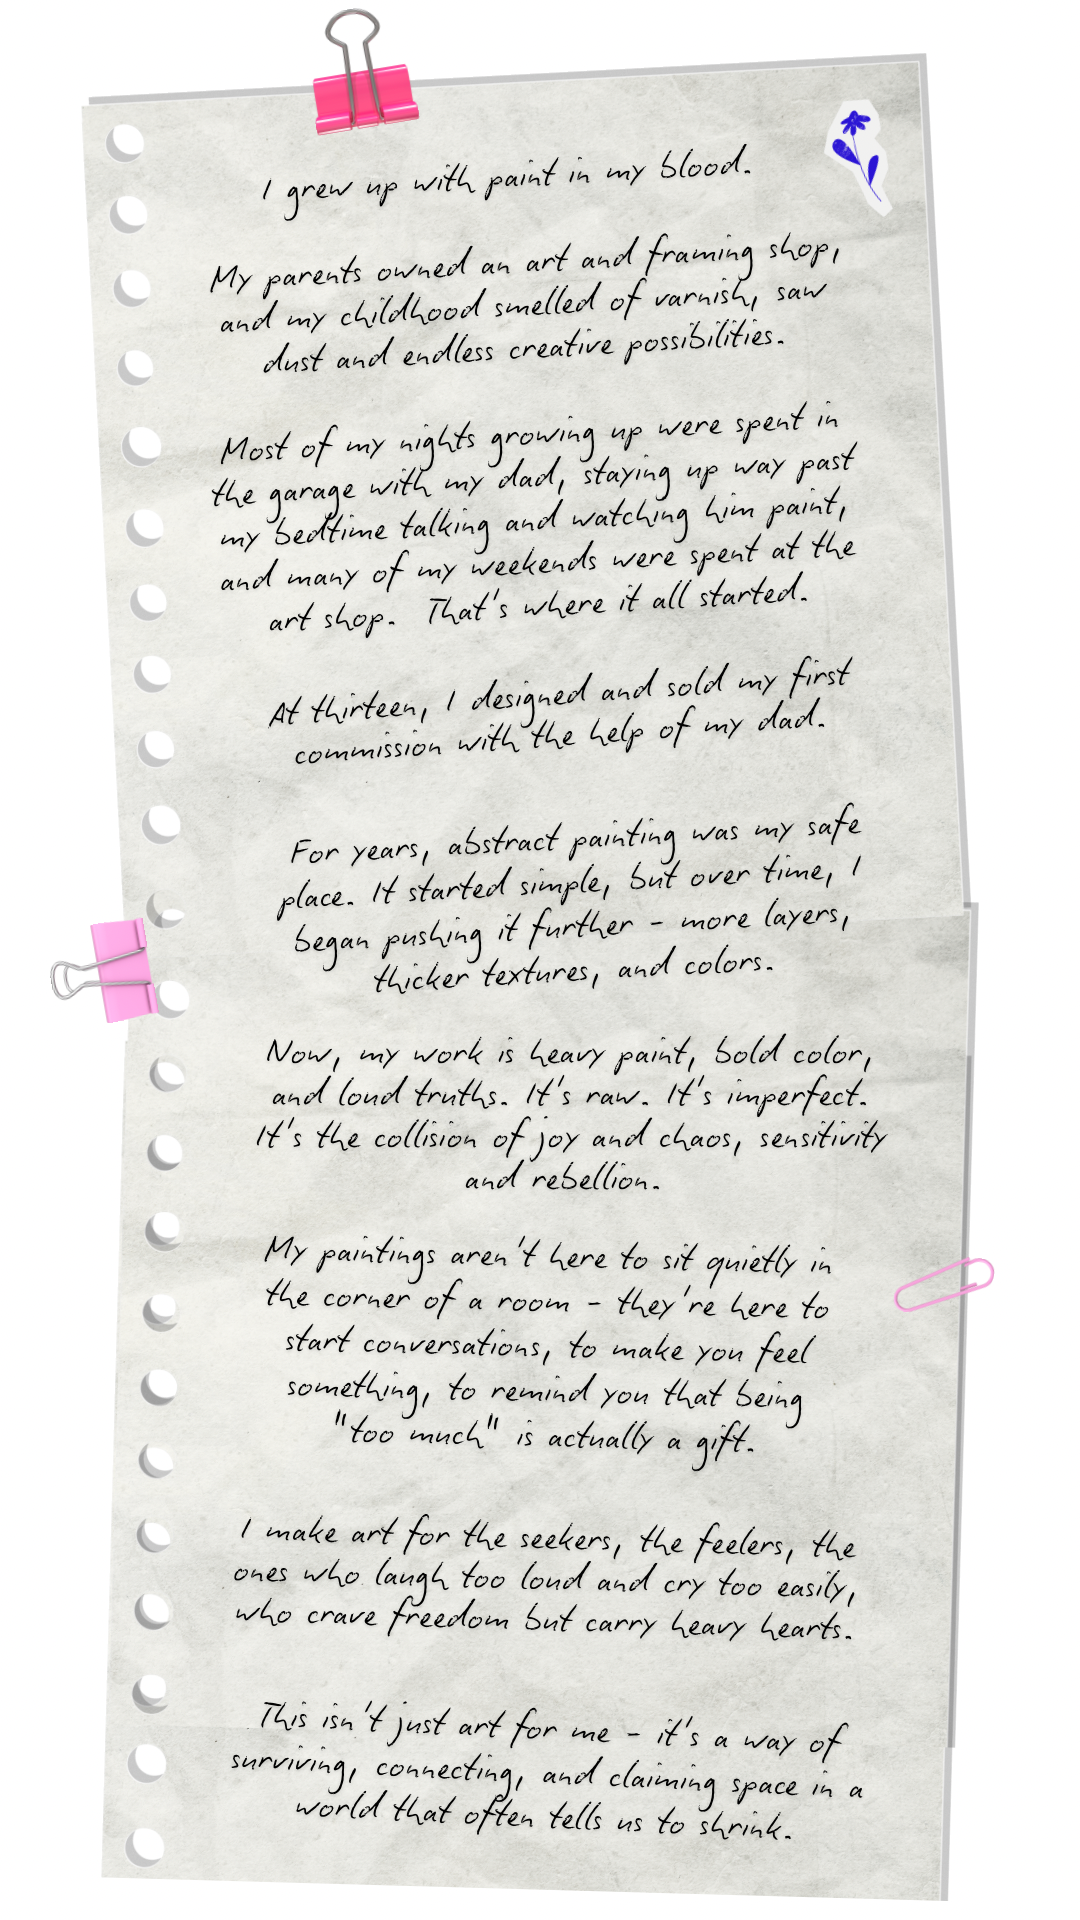 I grew up with paint in my blood.
My parents owned an art and framing shop,
and my childhood smelled of varnish, saw
dust and endless creative possibilities.
Most of my nights growing up were spent in
the garage with my dad, staying up way past
my bedtime talking and watching him paint,
and many of my weekends were spent at the
art shop. That's where it all started.
At thirteen, I designed and sold my first
commission with the help of my dad.
For years, abstract painting was my safe
place. It started simple, but over time, I
began pushing it further - more layers,
thicker textures, and colors.
Now, my work is heavy paint, bold color,
and loud truths. It's raw. It's imperfect.
It's the collision of joy and chaos, sensitivity
and rebellion.
My paintings aren't here to sit quietly in
the corner of a room - they're here to
start conversations, to make you feel
something, to remind you that being
"too much" is actually a gift.
I make art for the seekers, the feelers, the
ones who laugh too loud and cry too easily,
who crave freedom but carry heavy hearts.
This isn't just art for me - it's a way of
surviving, connecting, and claiming space in a
world that often tells us to shrink.